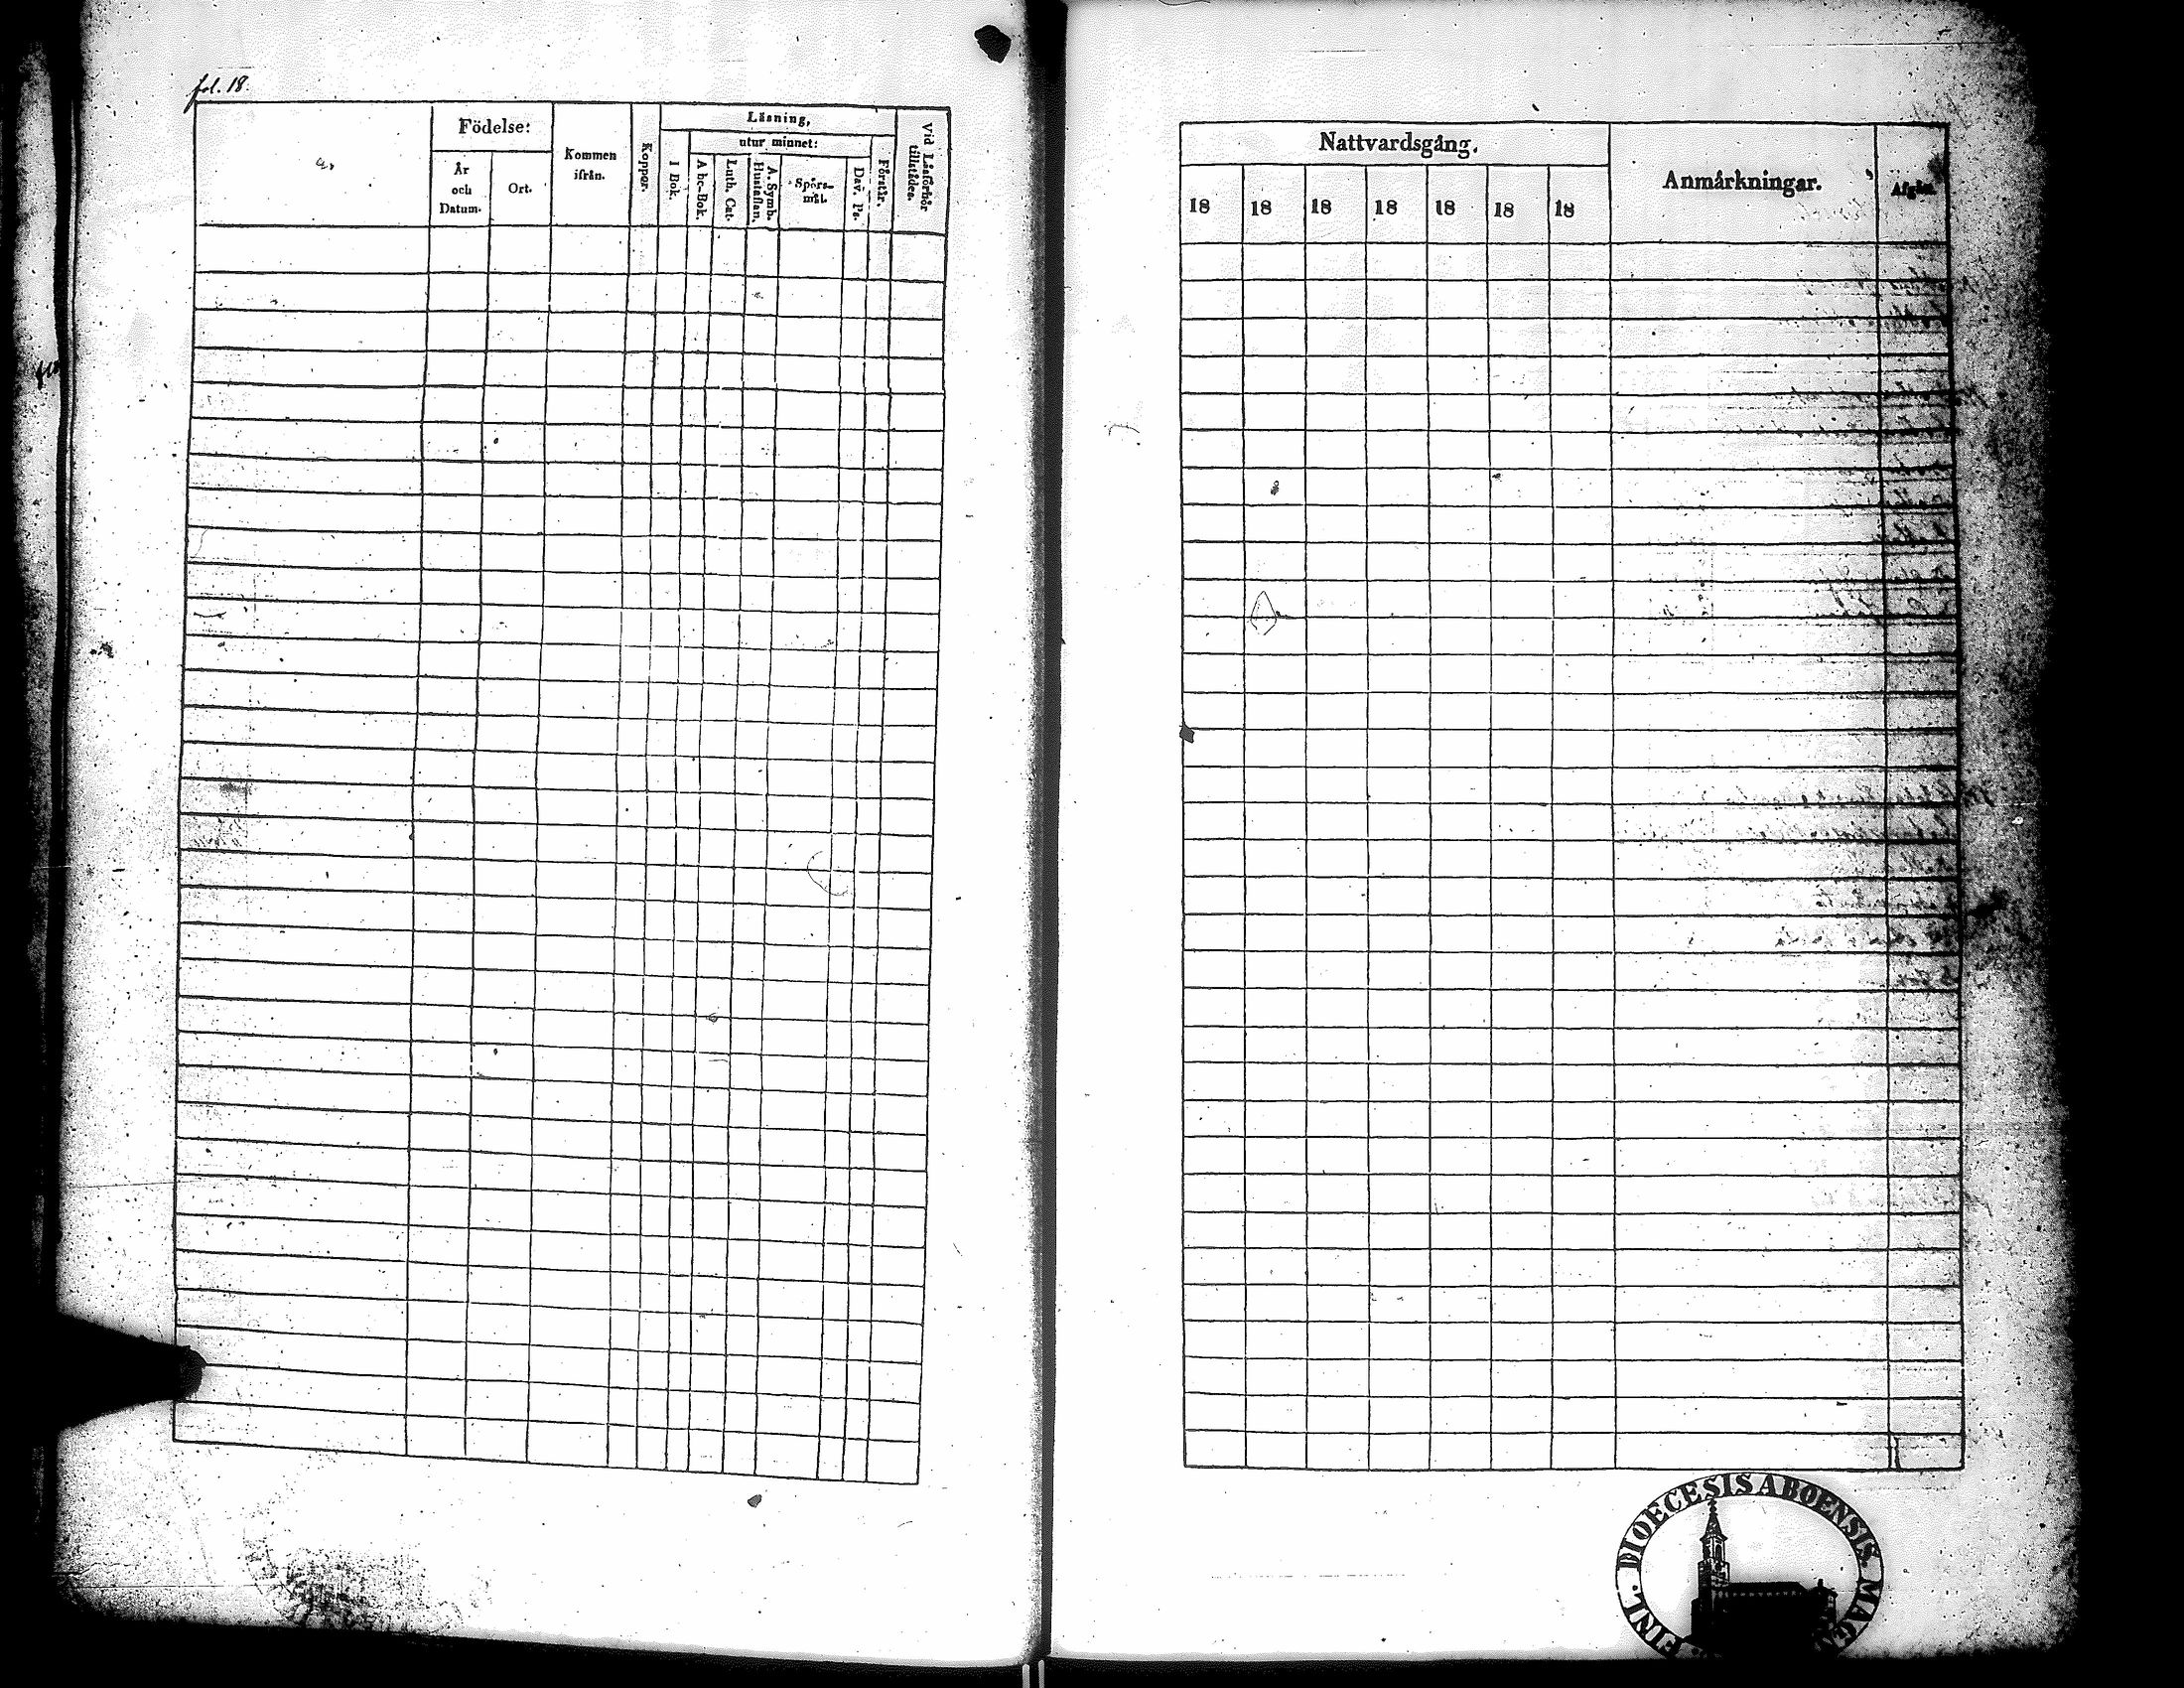 fol. 18.
Födelse:
År
och
Datum.
Ort.
Kommen
ifrån.
Koppor.
Läsning,
utur minnet:
I Bok.
Abc-Bok.
Luth. Cat.
A. Symb.
Hustaflan.
Spörs-
mål.
Dav. Ps.
Förstår.
Vid Läsförhör
tillstädes.
Nattvardsgång.
18 18 18 18 18 18 18
Anmärkningar.
Afgån.
FINL. DIOECESIS ABOENSIS. MAGN